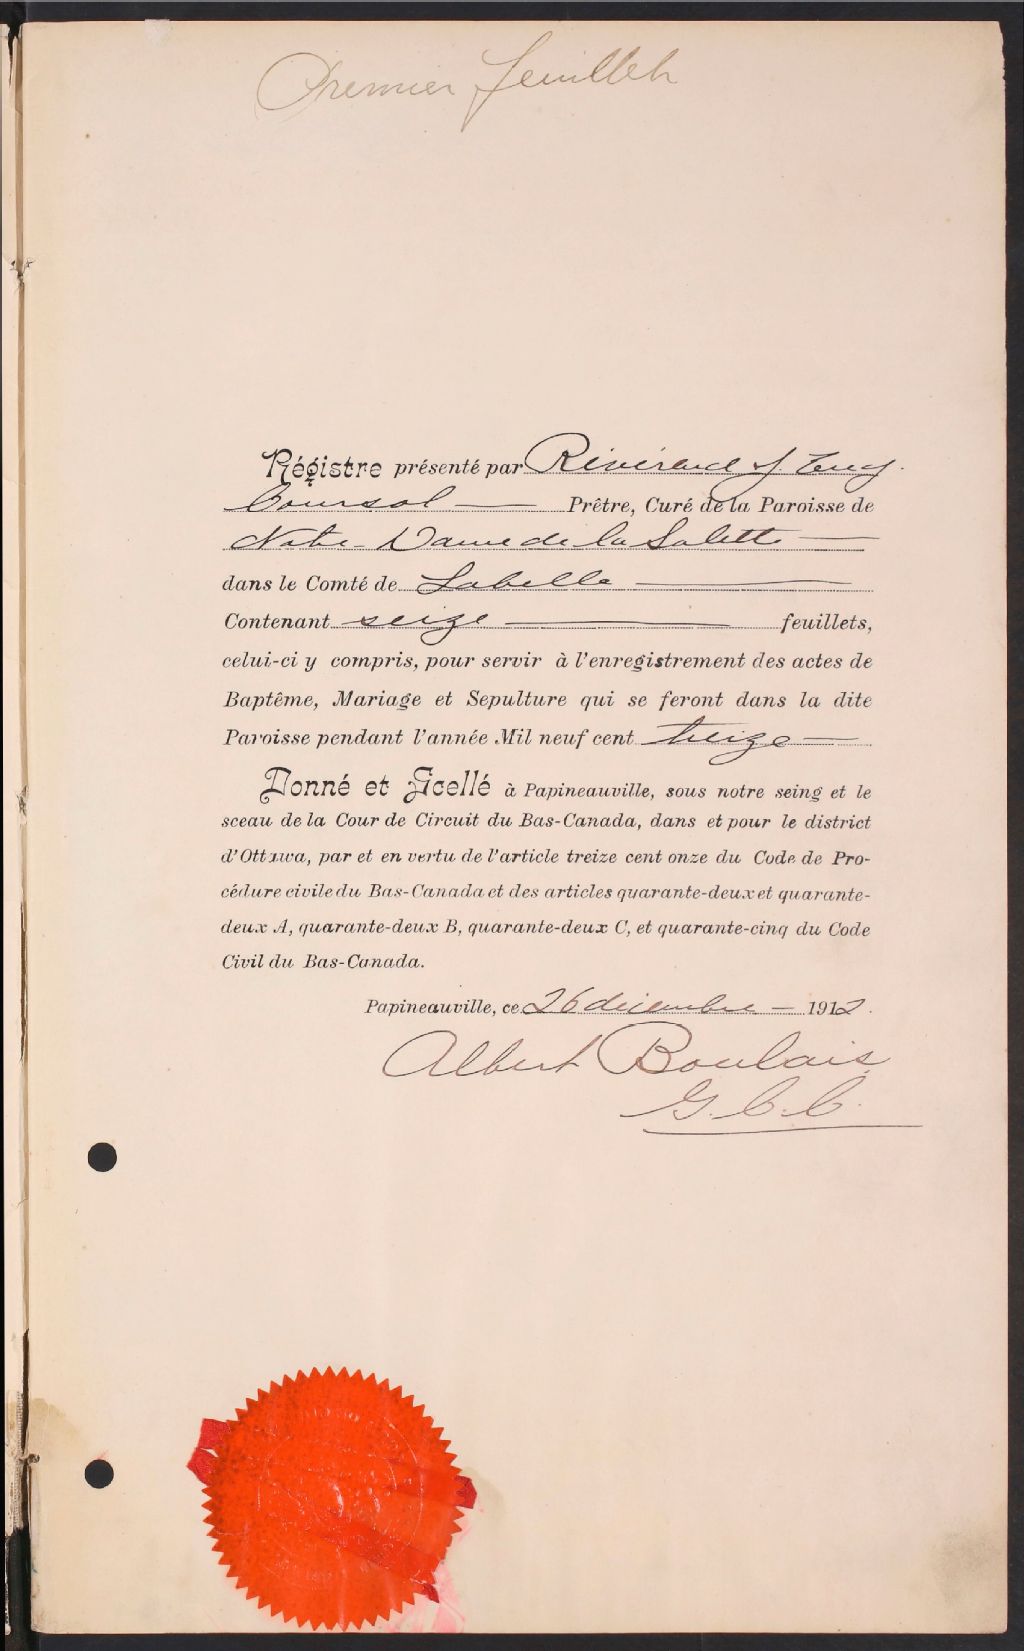 Premier feuillet
Régistre présenté par Révérend J.
Coursol Prêtre, Curé de la Paroisse de
Notre-Dame de la Salette
dans le Comté de Labelle
Contenant seize feuillets,
celui-ci y compris, pour servir à l'enregistrement des actes de
Baptême, Mariage et Sepulture qui se feront dans la dite
Paroisse pendant l'année Mil neuf cent treize
Donné et Scellé à Papineauville, sous notre seing et le
sceau de la Cour de Circuit du Bas-Canada, dans et pour le district
d'Ottawa, par et en vertu de l'article treize cent onze du Code de Pro-
cédure civile du Bas-Canada et des articles quarante-deux et quarante-
deux A, quarante-deux B, quarante-deux C, et quarante-cinq du Code
Civil du Bas-Canada.
Papineauville, ce 26 décembre 1912.
Albert Boulais
G.C.C.